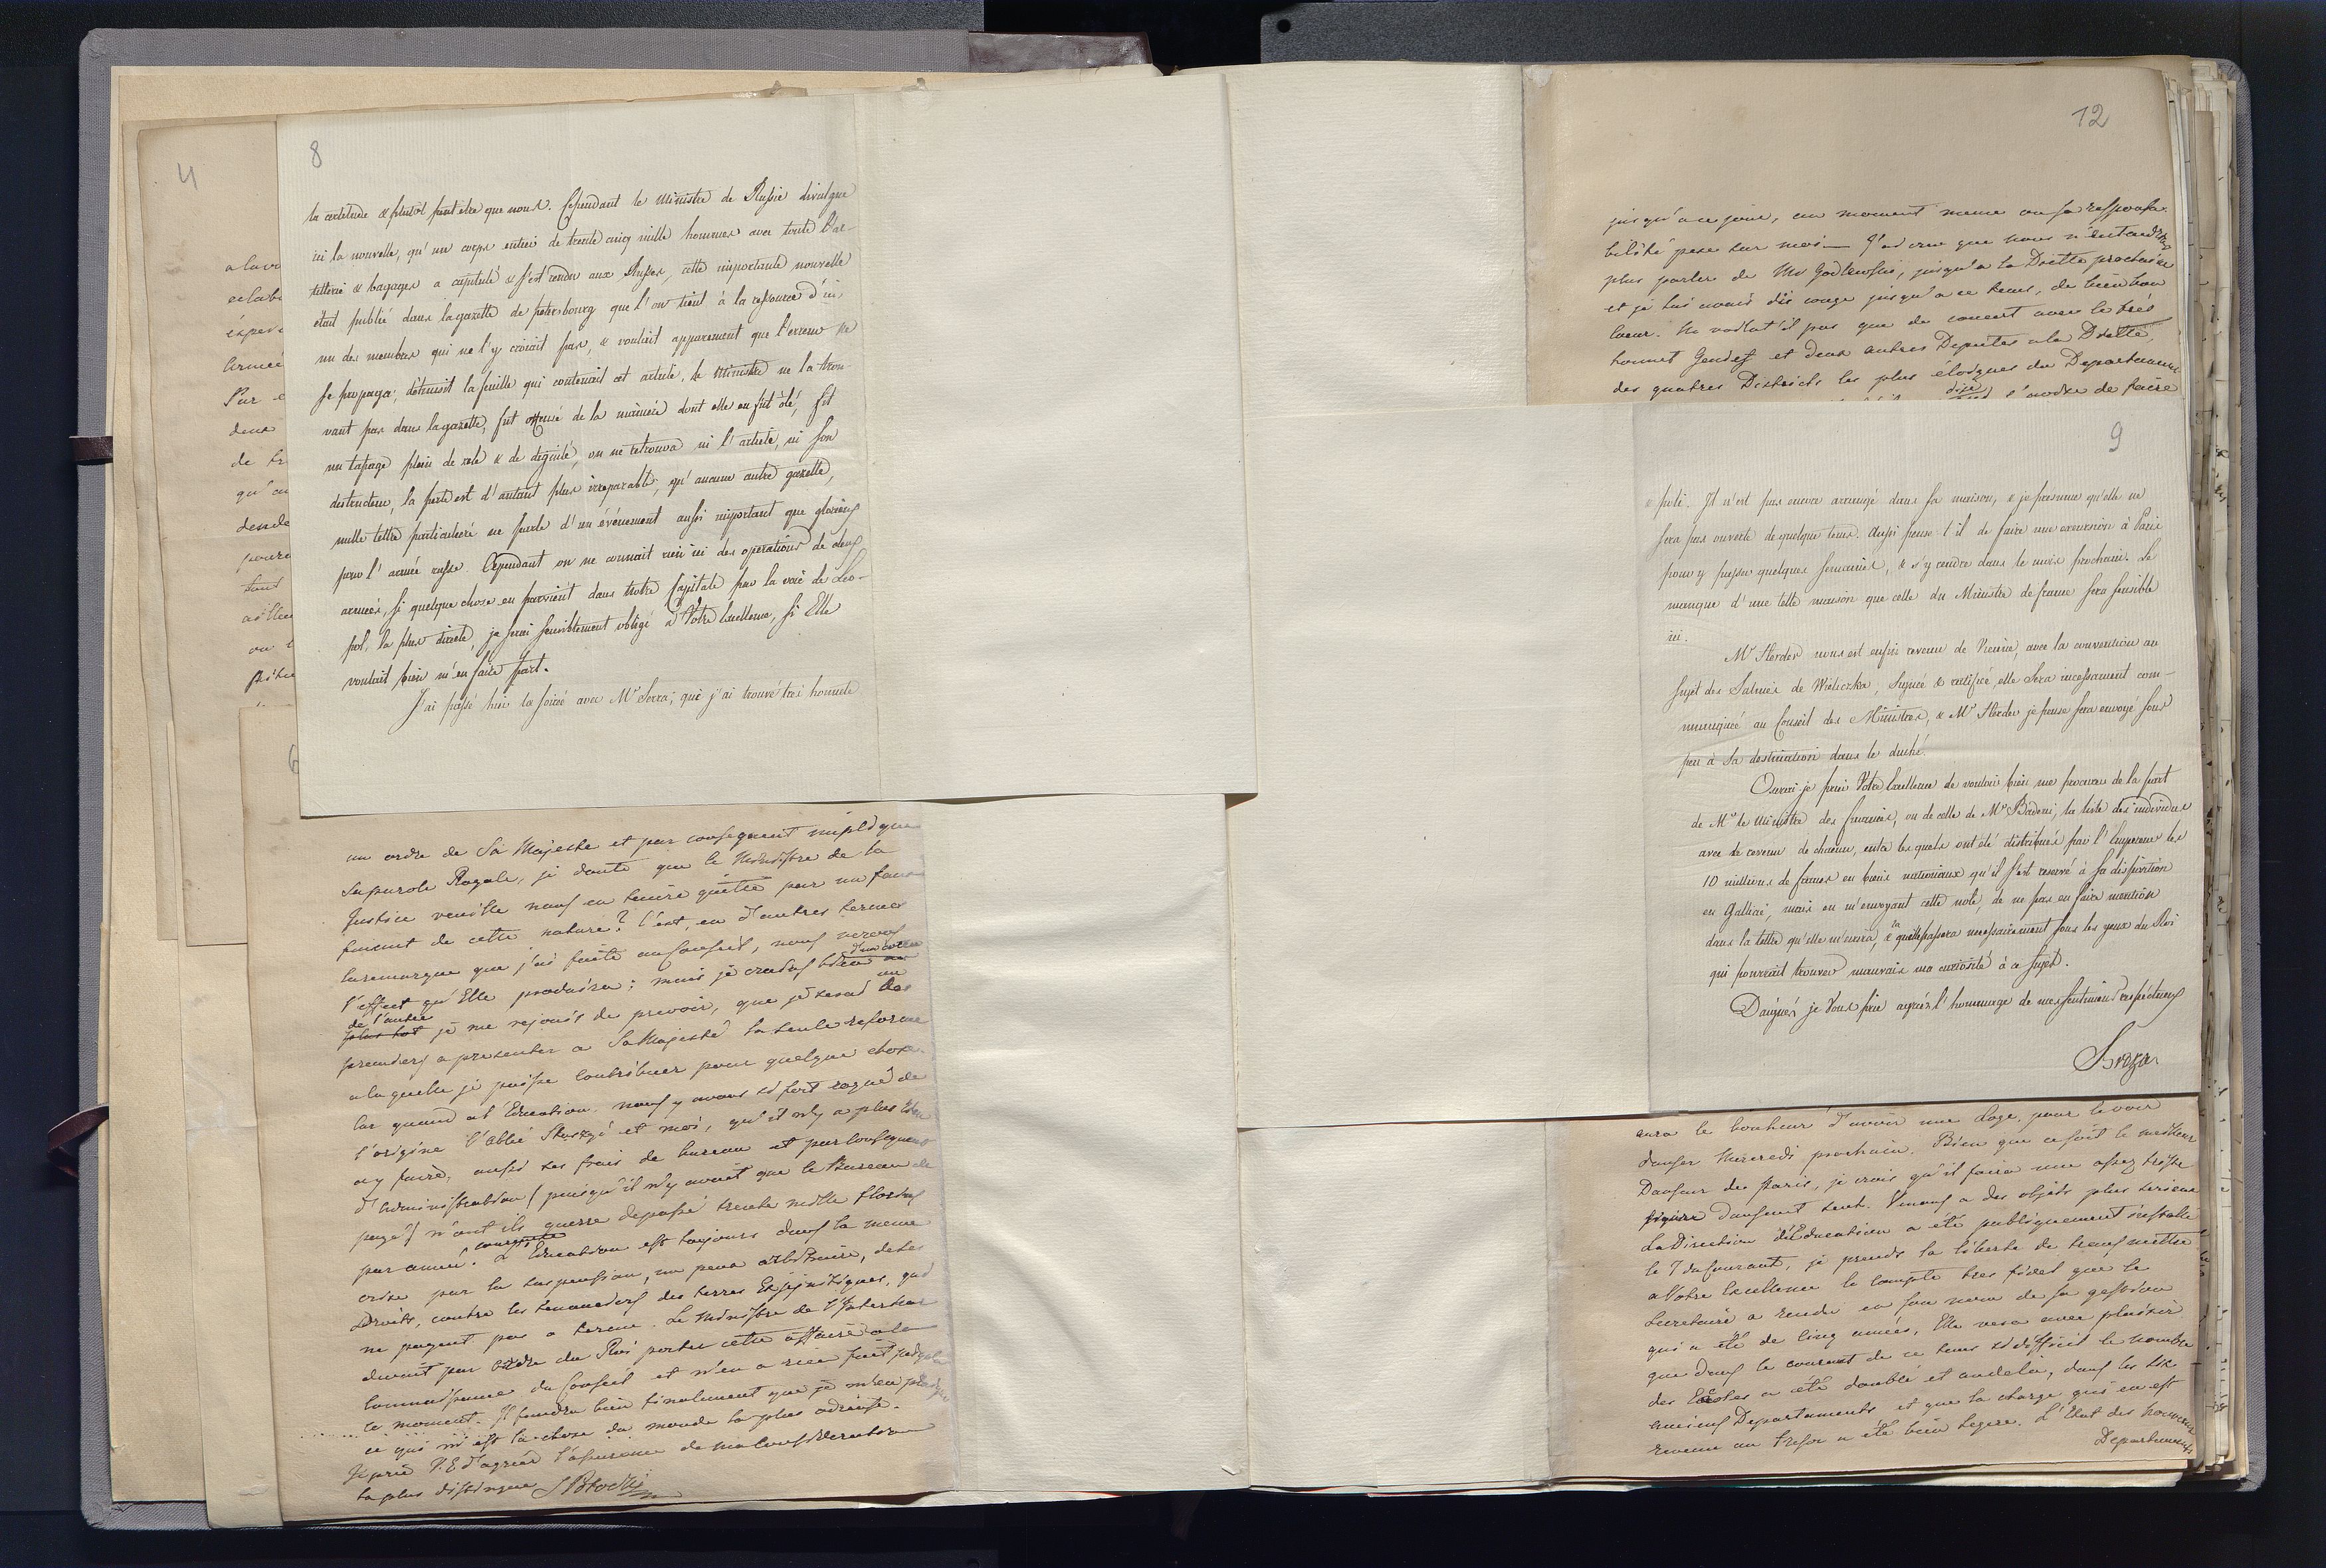 4
8
la certitude & plutôt peut etre que nous. Cependant le Ministre de Russie divulgue
ici la nouvelle, qu'un corps entier de trente cinq mille hommes avec toute l'ar-
tillerie & bagages a capitulé & s'est rendu aux Russes, cette importante nouvelle
etait publiée dans la gazette de petersbourg que l'on tient à la ressource d'ici,
un des membres qui ne l'y croiait pas, & voulait apparement que l'erreur ne
se propaga, détruisit la feuille qui contenait cet article, le Ministre ne la trou-
vant pas dans la gazette, fut offensé de la manière dont elle en fut ôté, fit
un tapage plein de zele & de dignité, on ne retrouva ni l'article, ni son
destructeur, la perte est d'autant plus irreparable, qu'aucune autre gazette,
nulle lettre particuliere ne parle d'un événement aussi important que glorieux
pour l'armée russe. Cependant on ne connait rien ici des operations de deux
armées, si quelque chose en parvient dans Notre Capitale par la voie de Leo-
pol, la plus directe, je serai sensiblement obligé à Votre Excellence, si Elle
voulait bien m'en faire part.
J'ai passé hier la soirée avec Mr Serra, que j'ai trouvé très honnete
6
un ordre de Sa Majesté et par consequent implique
sa parole Royale, je doute que le Ministre de la
Justice veuille nous en tenir quitte pour un
de cette nature? C'est, en d'autres termes
la remarque que j'ai faite au Conseil, nous verrons
l'effect qu'Elle produira; mais je
de l'autre
plus tot je me rejouis de prevoir, que je serai un des
premiers a presenter a Sa Majesté la seule reforme
a laquelle je puisse contribuer pour quelque chose
Car quand a l'Education, nous y avons si fort rogné de
l'origine l'abbé et moi, qu'il n'y a plus rien
a y faire, aussi les frais de bureau et par consequent
d'administration (puisqu'il n'y avait que le Bureau de
payé) n'ont ils guerre depassé trente mille florins
par année. L'Education est toujours dans la meme
crise par la suspension, un peu arbitraire, de ses
droits, contre les tenanciers des terres Exjesuitiques, qui
ne payent pas a terme. Le Ministre de l'Interieur
devait par ordre du Roi porter cette affaire a la
connaissance du Conseil et n'en a rien fait jusqu'a
ce moment. Il faudra bien finalement que je m'en plaigne
ce qui m'est la chose du monde la plus odieuse.
Je prie V.E d'agréer l'assurance de ma consideration
la plus distinguée SPotocki
12
jusqu'a ce jour, au moment meme ou sa responsa-
bilité pese sur moi — J'ai cru que nous n'entendrions
plus parler de Mr Godlewski, jusqu'a la Diette prochaine
et je lui avais dit congé jusqu'a ce tems, de bien bon
coeur. Ne voilat'il pas que de concert avec le tres
honnet Gendef et deux autres Deputés a la Diette,
des quatres Districts les plus eloignés du Departement
l'ordre de faire
9
& poli. Il n'est pas encore arrangé dans sa maison, & je presume qu'elle ne
sera pas ouverte de quelque tems. Aussi pense-t-il de faire une excursion à Paris
pour y passer quelques semaines, & s'y rendre dans le mois prochain. Le
manque d'une telle maison que celle du Ministre de france sera sensible
ici.
Mr Herder nous est enfin revenu de Vienne, avec la convention au
sujet des Salines de Wieliczka, signée & ratifiée, elle sera incessament com-
muniquée au Conseil des Ministres, & Mr Herder je pense sera envoyé sous
peu à sa destination dans le duché.
Oserai-je prier Votre Excellence de vouloir bien me procurer de la part
de Mr le Ministre des finances, ou de celle de Mr Badeni, la liste des individus
avec le revenu de chacun, entre lesquels ont été distribués par l'Empereur les
10 millions de francs en biens nationaux qu'il s'est reservé à sa disposition
en Gallicie, mais en m'envoyant cette note, de ne pas en faire mention
dans la lettre qu'elle m'ecrira, & qui passera necessairement sous les yeux du Roi
qui pourrait trouver mauvais ma curiosité à ce sujet.
Daignés je Vous prie agréer l'hommage de mes sentimens respectueux
Breza
aura le bonheur d'avoir une loge, pour le voir
danser Mercredi prochain. Bien que ce soit le meilleur
Danseur de Paris, je crois qu'il faira une assez triste
figure dansant seul. Venons a des objets plus serieux
La Direction d'Education a été publiquement installée
le 7 du Courant, je prends la liberté de transmettre
a Votre Excellence le Compte tres fidel que le
Secretaire a rendu en son nom de sa gestion
qui a été de cinq années, Elle verra avec plaisir
que dans le courant de ce tems si difficil le nombre
des Ecoles a été doublé et audela, dans les six
anciens Departements et que la charge qui en est
revenue au Tresor a été bien legere. L'Etat des nouveaux
Departements